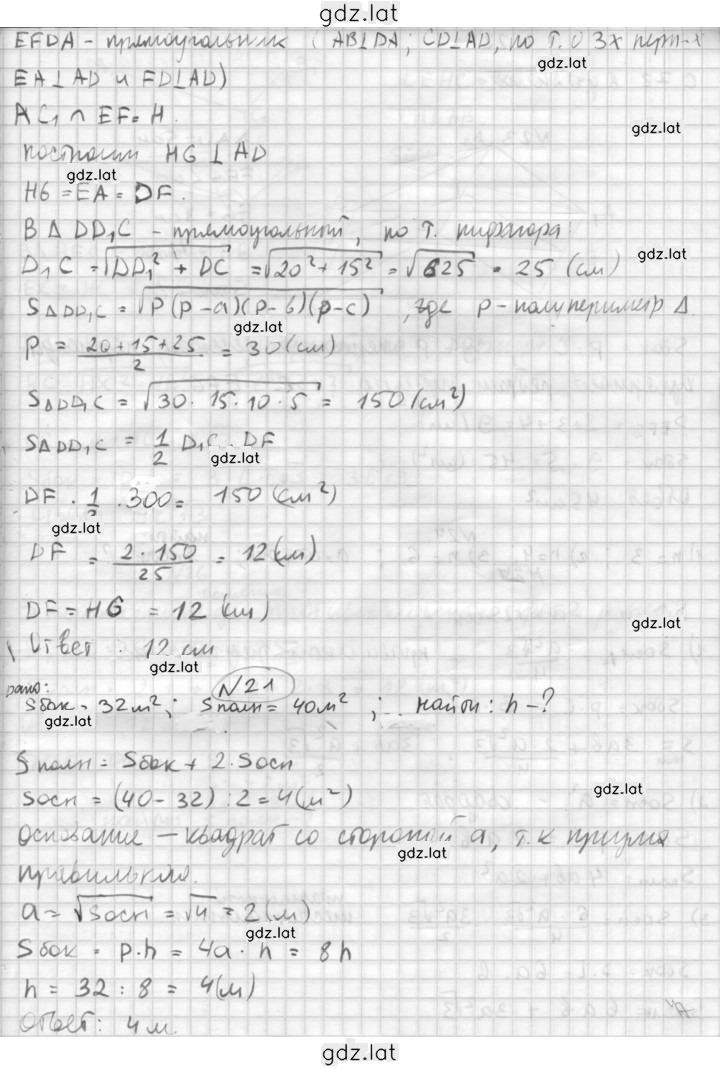 gdz.lat
EFDA - прямоугольник (AB⊥DA; CD⊥AD, по т. о 3х перп-х
gdz.lat
EA⊥AD и FD⊥AD)
AC₁ ∩ EF = H.
gdz.lat
построим HG ⊥ AD
gdz.lat
HG = EA = DF.
В Δ DD₁C - прямоугольный, по т. пифагора:
gdz.lat
D₁C = √(DD₁² + DC) = √(20² + 15²) = √625 = 25 (см)
SΔDD₁C = √(P(P-a)(P-b)(P-c)), где p - полупериметр Δ.
gdz.lat
P = (20+15+25)/2 = 30 (см)
SΔDD₁C = √(30 · 15 · 10 · 5) = 150 (см²)
SΔDD₁C = 1/2 D₁C · DF
gdz.lat
DF · 1/2 · 300 = 150 (см²)
gdz.lat
DF = (2 · 150)/25 = 12 (см)
DF = HG = 12 (см)
gdz.lat
Ответ: 12 см
gdz.lat
N21
дано:
Sбок = 32 м²; Sполн = 40 м²; найти: h - ?
gdz.lat
Sполн = Sбок + 2 · Sосн
gdz.lat
Sосн = (40 - 32) : 2 = 4 (м²)
Основание – квадрат со стороной а, т.к призма
gdz.lat
правильная.
a = √Sосн = √4 = 2 (м)
gdz.lat
Sбок = P · h = 4a · h = 8h
h = 32 : 8 = 4 (м)
Ответ: 4 м.
gdz.lat